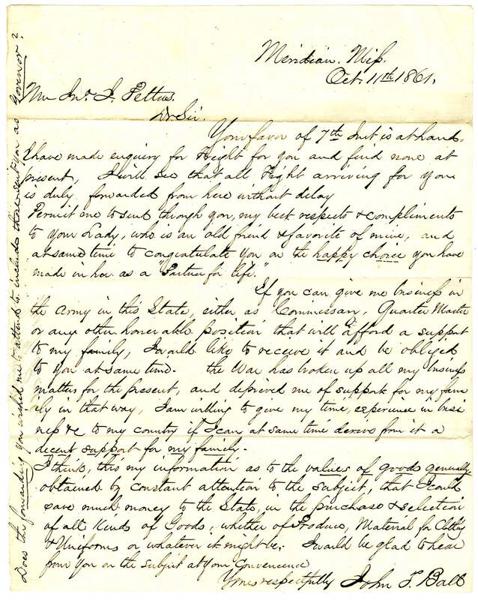 Meridian. Miss.
Oct. 11th 1861.
Mr Jno. J. Pettus.
Dr Sir.
Your favor of 7th Inst is at hand.
I have made enquiry for Freight for you and find none at
present, I will see that all Freight arriving for you
is duly forwarded from here without delay
Permit me to send through you, my best respects & compliments
to your Lady, who is an old friend & favorite of mine, and
at same time to congratulate you on the happy choice you have
made in her as a Partner for life.
If you can give me business in
the Army in this State, either as Commissary, Quarter Master
or any other honorable position that will afford a support
to my family, I would like to receive it and be obliged
to you at same time. The War has broken up all my business
matters for the present, and deprived me of support for my fam
ily in that way, I am willing to give my time, experience in busi
ness &c to my country if I can at same time derive from it a
decent support for my family.
I think, this my information as to the values of goods generally
obtained by constant attention to the subject, that I could
save much money to the State, in the purchase & selection
of all Kinds of Goods, whether of Produce, Material for Clothg
& Uniforms or whatever it might be. I would be glad to hear
from you on the subject at your Convenience
Yours respectfully John T. Ball
Does the forwarding you wished me to attend to include those sent you as Governor?